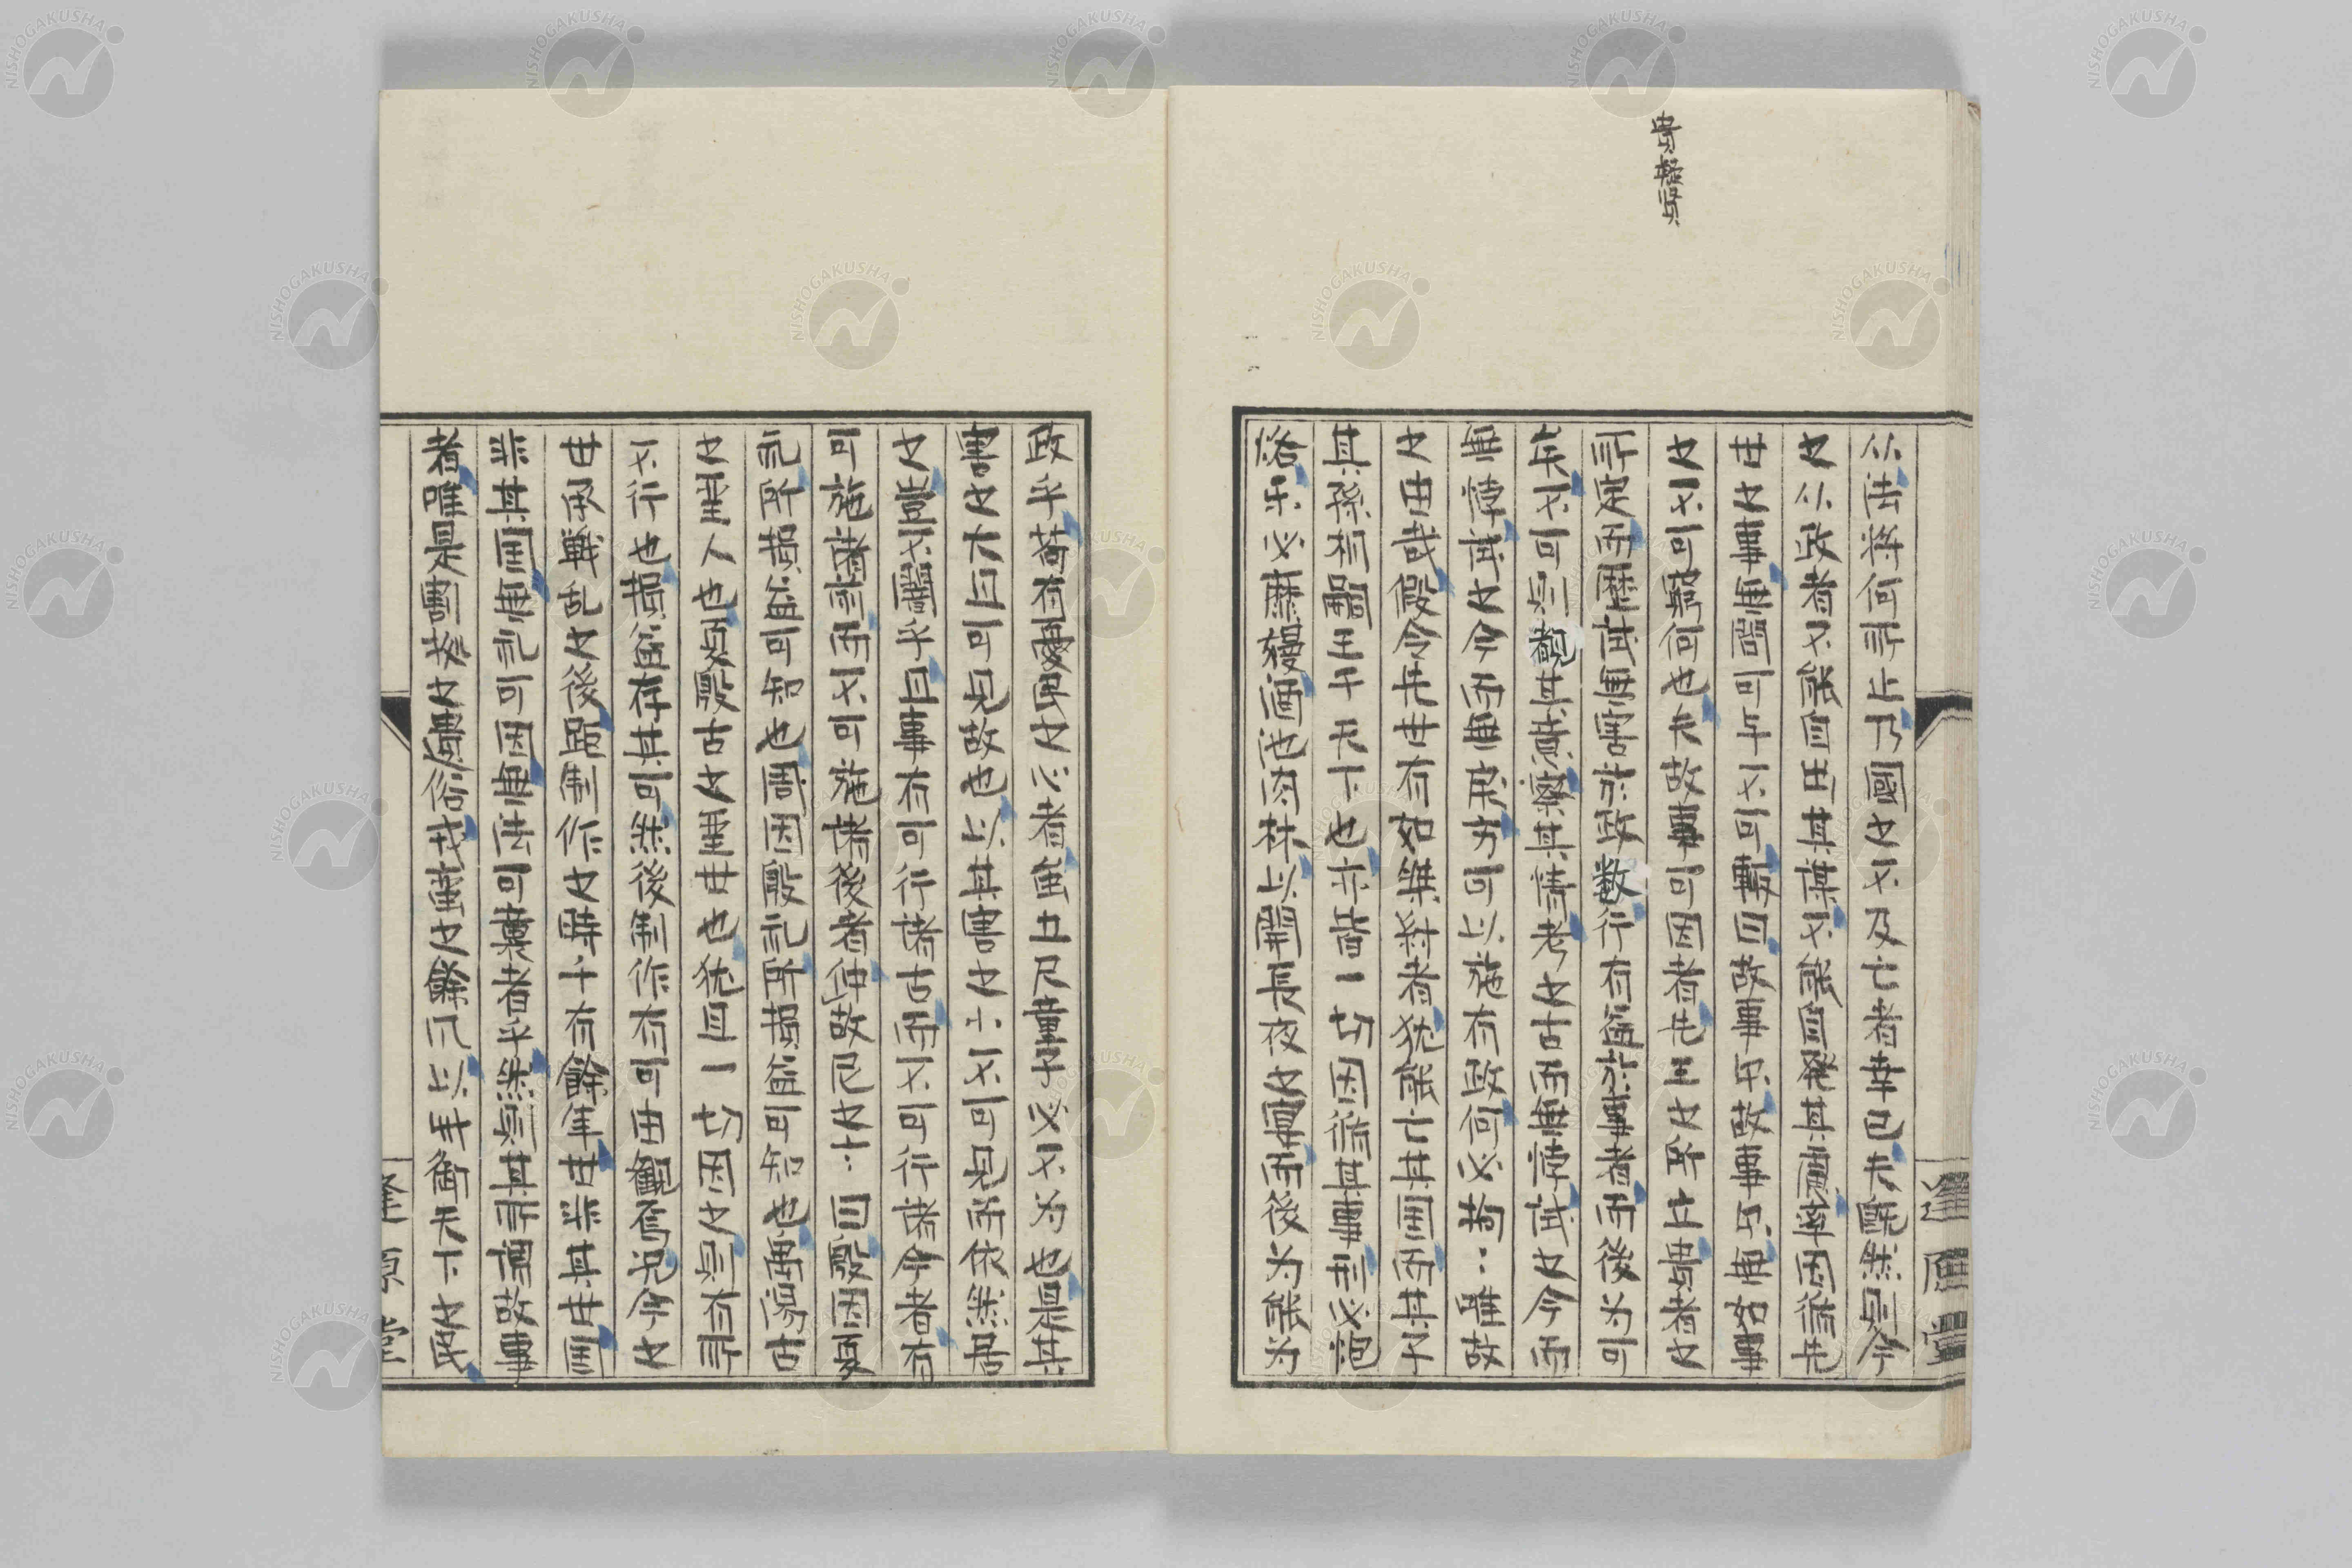 貴當作責
以法將何所止乃國之不及亡者幸已夫既然則今
之以政者不能自出其謀不能自發其慮率因循先
世之事無問可与不可輙曰故事只故事只無如事
之不可窮何也夫故事可因者先王之所止貴者之
所定而歴試無害於政数行有益於事者而後为可
矣不可則観其蹟察其情考之古而無悖試之今而
無悖試之今而無戻为可以施有政何必拘〻唯故
之由哉假令先世有如桀紂者猶能亡其国而其子
其孫相嗣王于天下也亦皆一切因循其事刑必炮
烙乐必靡嫚酒池肉林以開長夜之宴而後为能为
政乎苟有憂国之心者虽五尺童子必不为也是其
害之大且可見故也以其害之小不可見而依然居
之豈不闇乎且事有可行諸古而不可行諸今者有
可施諸前而不可施諸後者仲故尼之十〻曰殷因夏
礼所損益可知也周因殷礼所損益可知也禹湯古
之聖人也夏殷古之聖世也猶且一切因之則有所
不行也損益存其可然後制作有可由観焉况今之
世承戦乱之後路制作之時千有餘年世非其世国
非其国無礼可因無法可襲者乎然則其所謂故事
者唯是割據之舊俗戎蛮之餘凡以我御天下之民
逢原堂
逢原堂